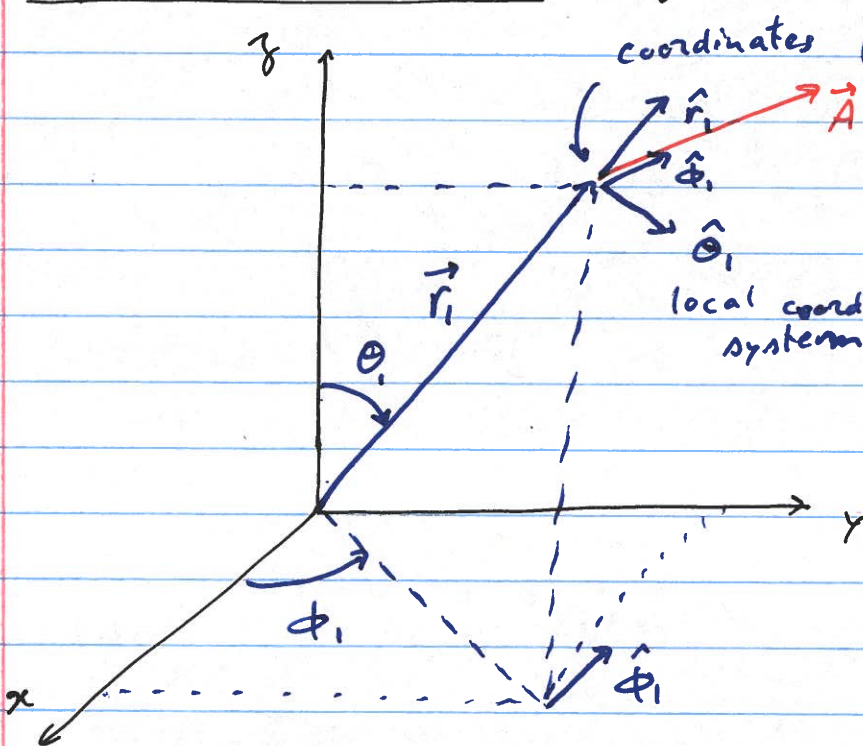 z
coordinates
r̂₁
A⃗
ϕ̂₁
θ̂₁
r⃗₁
local coord
system
θ₁
y
ϕ₁
ϕ̂₁
x